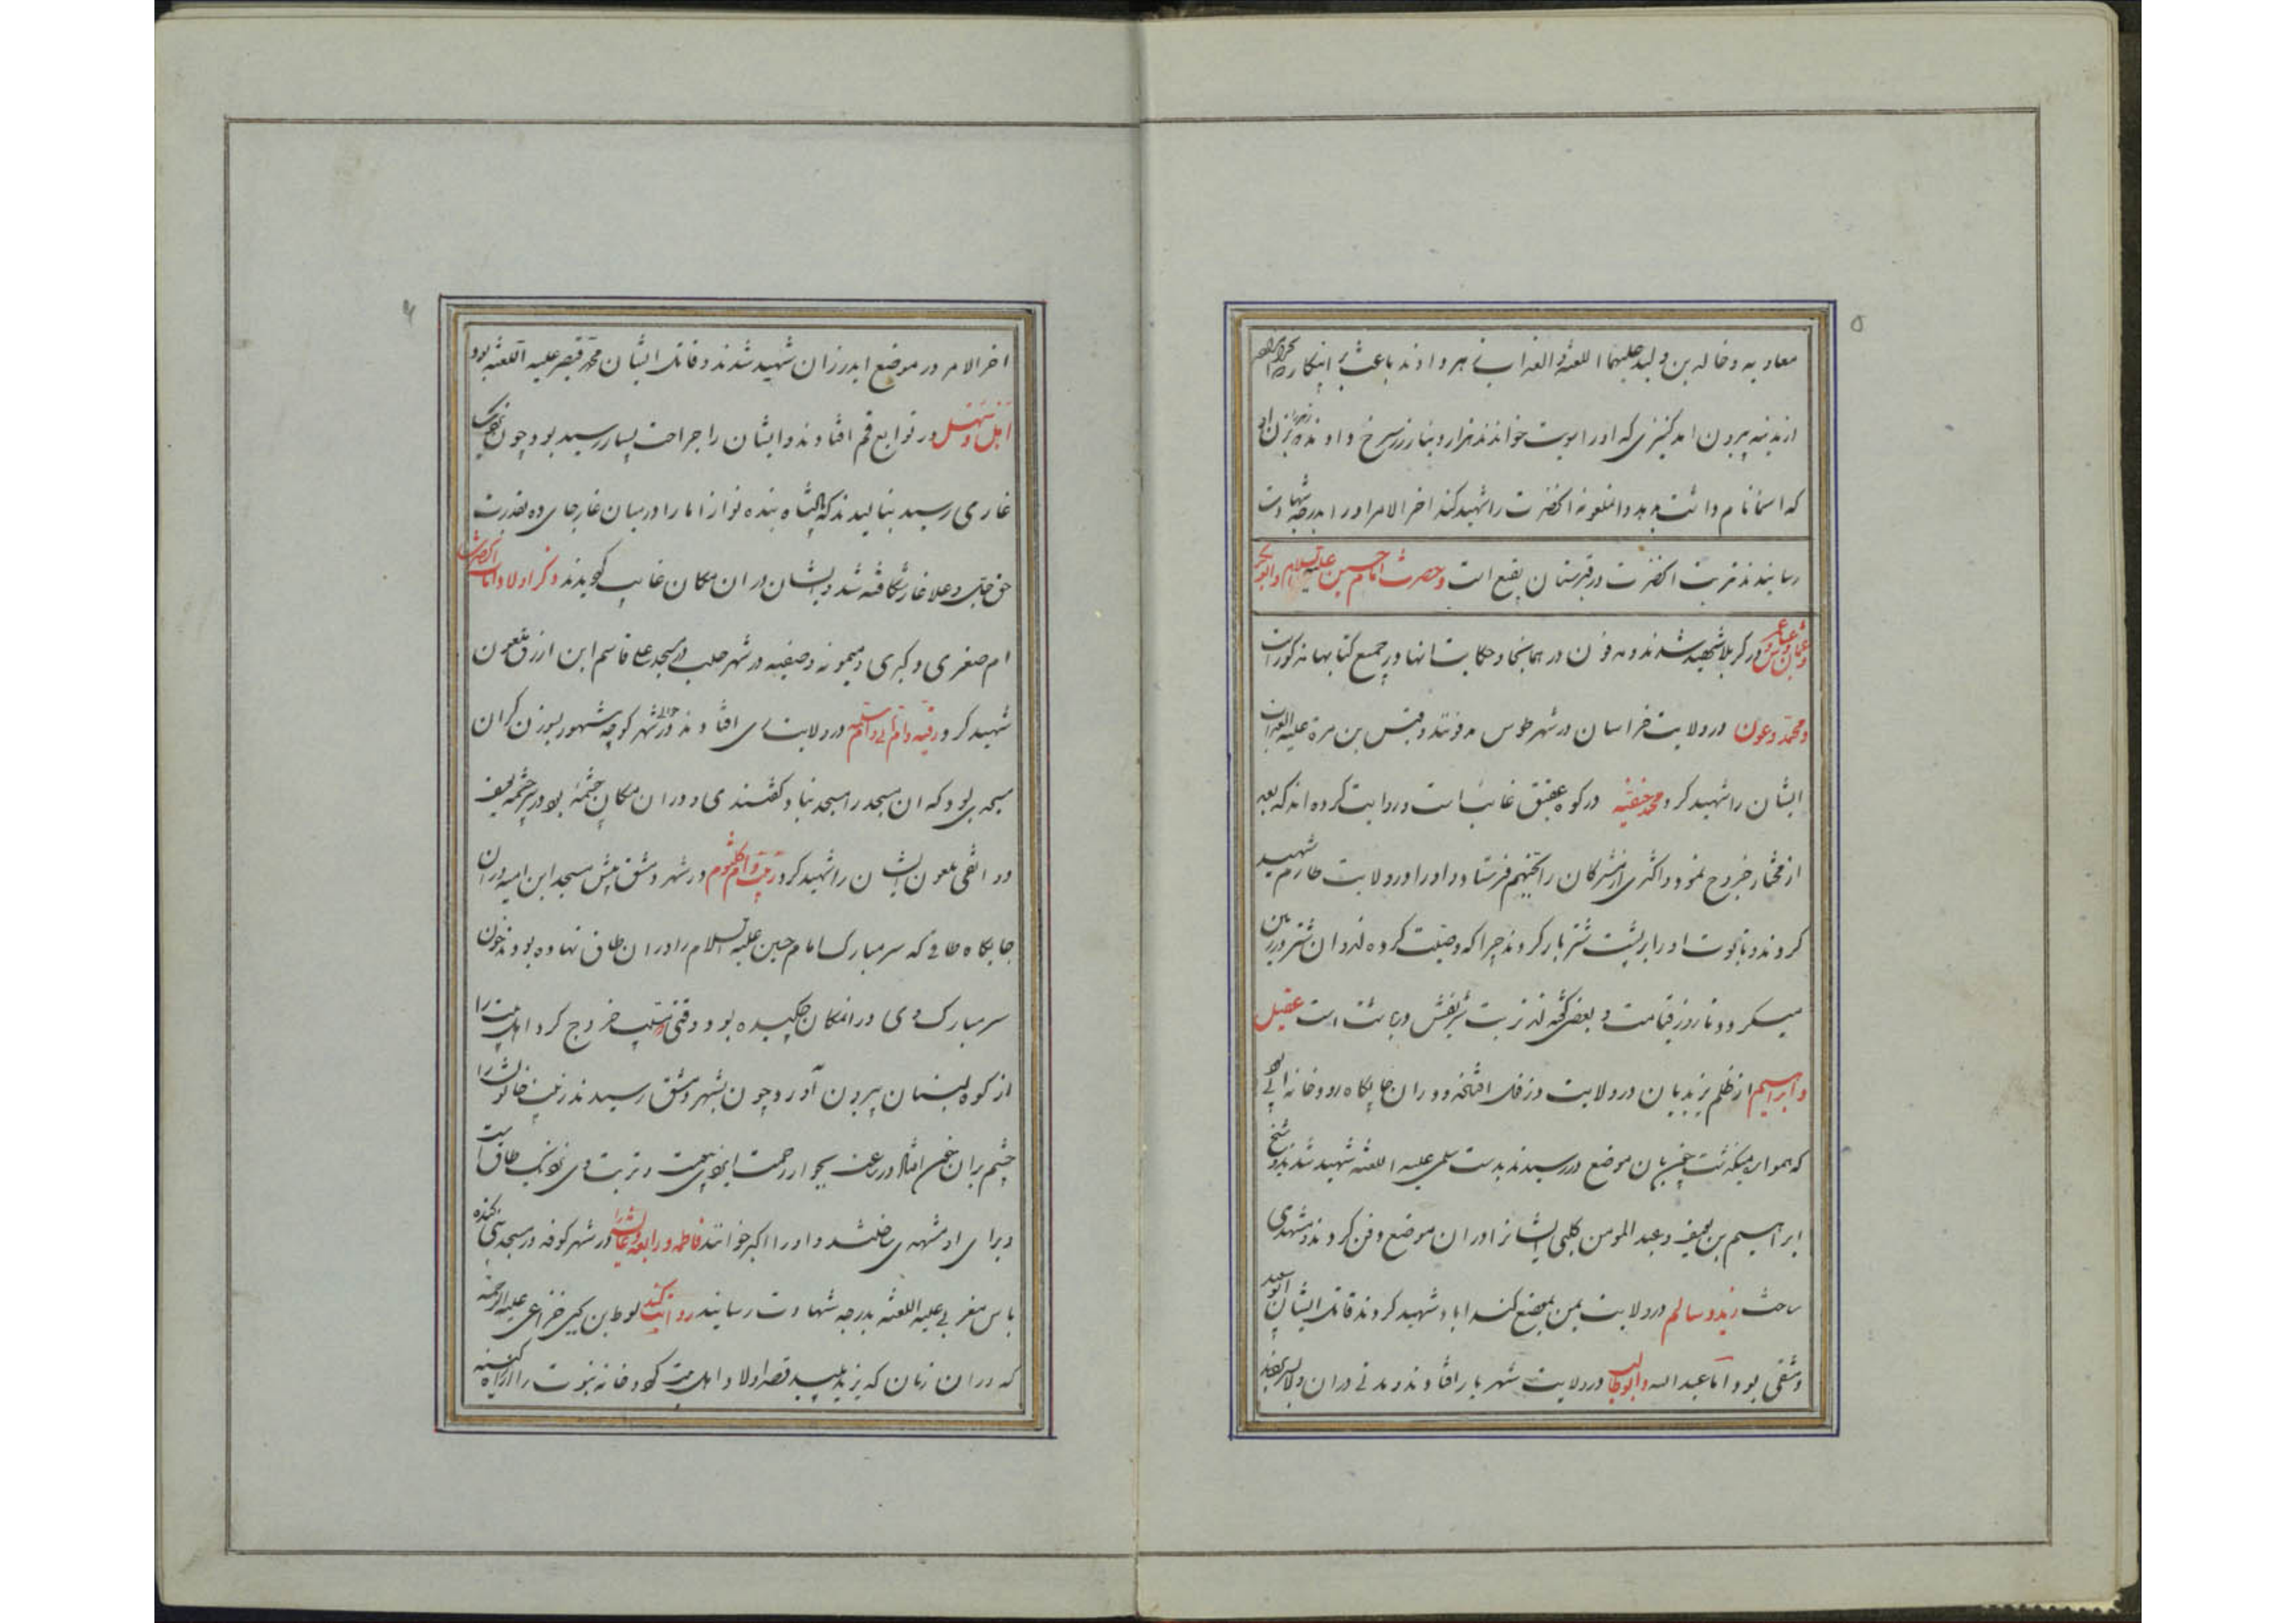 ۵
معاویه و خالد بن ولید علیهما اللعنة و العذاب زهر دادند باعث بر اینکار
از مدینه بیرون امد کنیزی که او را خواندند هزار دینار زر سرخ دادند
که اسما نام داشت بدید و ملعونه انحضرت را شهید کند اخر الامر او را بدرجه شهادت
رسانیدند تربت انحضرت در قبرستان بقیع است و حضرت امام حسین علیه السلام و
و عثمان و عباس در کربلا شهید شدند و مدفون در همانجا و حکایت انها در جمیع کتابها مذکور است
و محمد و عون در ولایت خراسان در شهر طوس مدفونند و قیس بن مره علیه
ایشان را شهید کرد و محمد حنفیه در کوه عقیق غائب است و روایت کرده اند که بعد
از مختار خروج نمود و اکثری از مشرکان را بجهنم فرستاد و او را در ولایت طارم شهید
کردند و تابوت او را بر پشت شتر بار کردند چرا که وصیت کرده بود ان شتر در زمین
میگردد تا روز قیامت و بعضی گفته اند تربت شریفش در است عقیل
و ابراهیم از ظلم یزیدیان در ولایت دزفل افتادند و در ان جایگاه رودخانه
که هموار میگذشت چون بان موضع در رسیدند بدست سلمی علیه اللعنه شهید شدند و شیخ
ابراهیم بن و عبد المومن کلبی ایشانرا در ان موضع دفن کردند و مشهدی
ساخت زید و سالم در ولایت یمن بموضع اباد شهید کردند قاتل ایشان ابو سعید
دمشقی بود و اما عبد الله و ابو طالب در ولایت شهریار افتادند و مدتی در ان
۶
اخر الامر در موضع اندرزان شهید شدند و قاتل ایشان محمد قیصر علیه اللعنه بود
و سهل در توابع قم افتادند و ایشان را جراحت بسیار رسیده بود چون
غاری رسیدند بنالیدند که الها پادشاه بنده نوازا ما را در میان غار جای ده بقدرت
حق جل و علا غار شکافته شد و ایشان در ان مکان غایب گردیدند ذکر اولاد اناث انحضرت
ام صغری و کبری و میمونه و صفیه در شهر حلب در مسجد علی قاسم ابن ازرق ملعون
شهید کرد و رقیه و در ولایت ری افتادند در شهر کوچه مشهور بوزن کران
مسجدی بود که ان مسجد را مسجد بنیاد گفتندی و در ان مکان چشمه بود بر سر چشمه
ملعون ایشان را شهید کرد زینب و ام کلثوم در شهر دمشق پیش مسجد ابن امیه در ان
جایگاه طاقی که سر مبارک امام حسین علیه السلام را در ان طاق نهاده بودند خون
سر مبارک وی در انمکان چکیده بود وقتی خروج کرد اهل بیت را
از کوه لبنان بیرون آورد چون بشهر دمشق رسیدند زینب خاتون را
چشم بر ان خون افتاد در ساعت بجوار رحمت ایزدی پیوست و تربت وی نزدیک طاق است
و برای او مشهدی ساختند و او را اکبر خوانند فاطمه و رابعه در شهر کوفه در مسجد
یاس مغربی علیه اللعنه بدرجه شهادت رسانید روایت کند لوط بن یحیی خزاعی علیه الرحمه
که در ان زمان که یزید پلید قصد اولاد اهل بیت کرد و خانه نبوت را